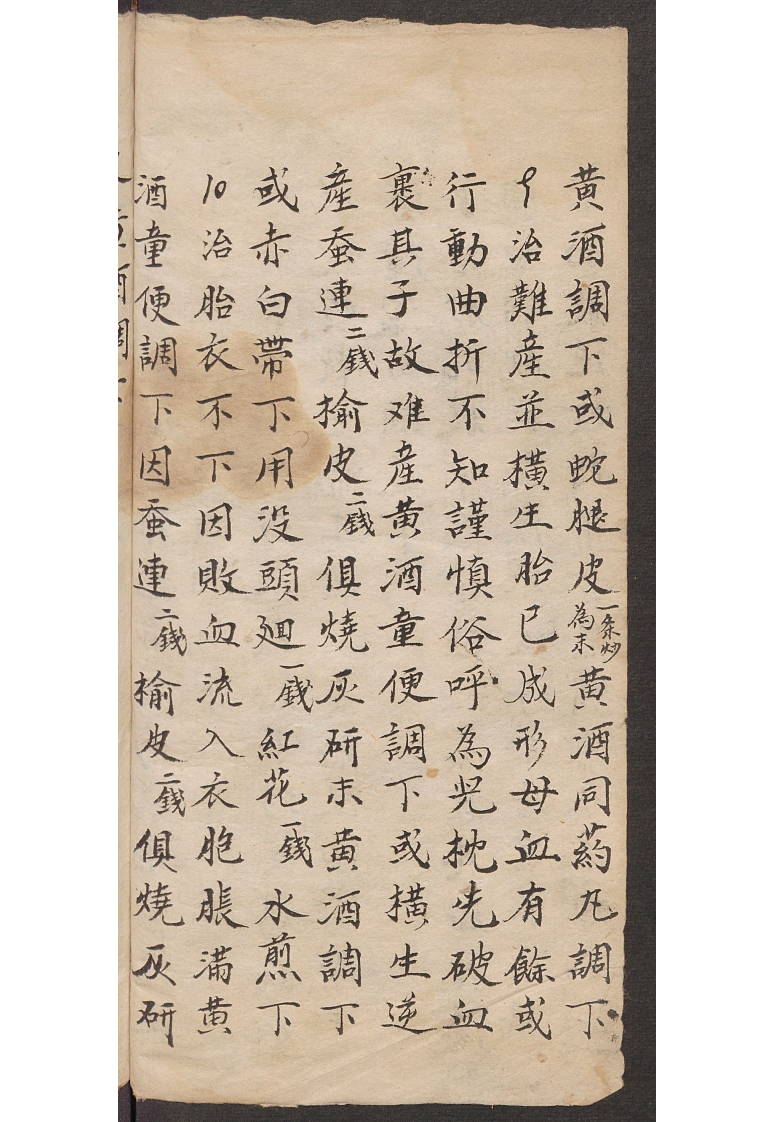 黄酒調下或蛇腿皮一条炒為末黄酒同葯丸調下
9治難産並橫生胎已成形母血有餘或
行動曲折不知謹慎俗呼為児枕先破血
裹其子故难産黄酒童便調下或橫生逆
産蚕連二錢榆皮二錢俱燒灰研末黄酒調下
或赤白帶下用没頭廻一錢紅花一錢水煎下
10治胎衣不下因敗血流入衣胞脹滿黄
酒童便調下因蚕連二錢榆皮二錢俱燒灰研